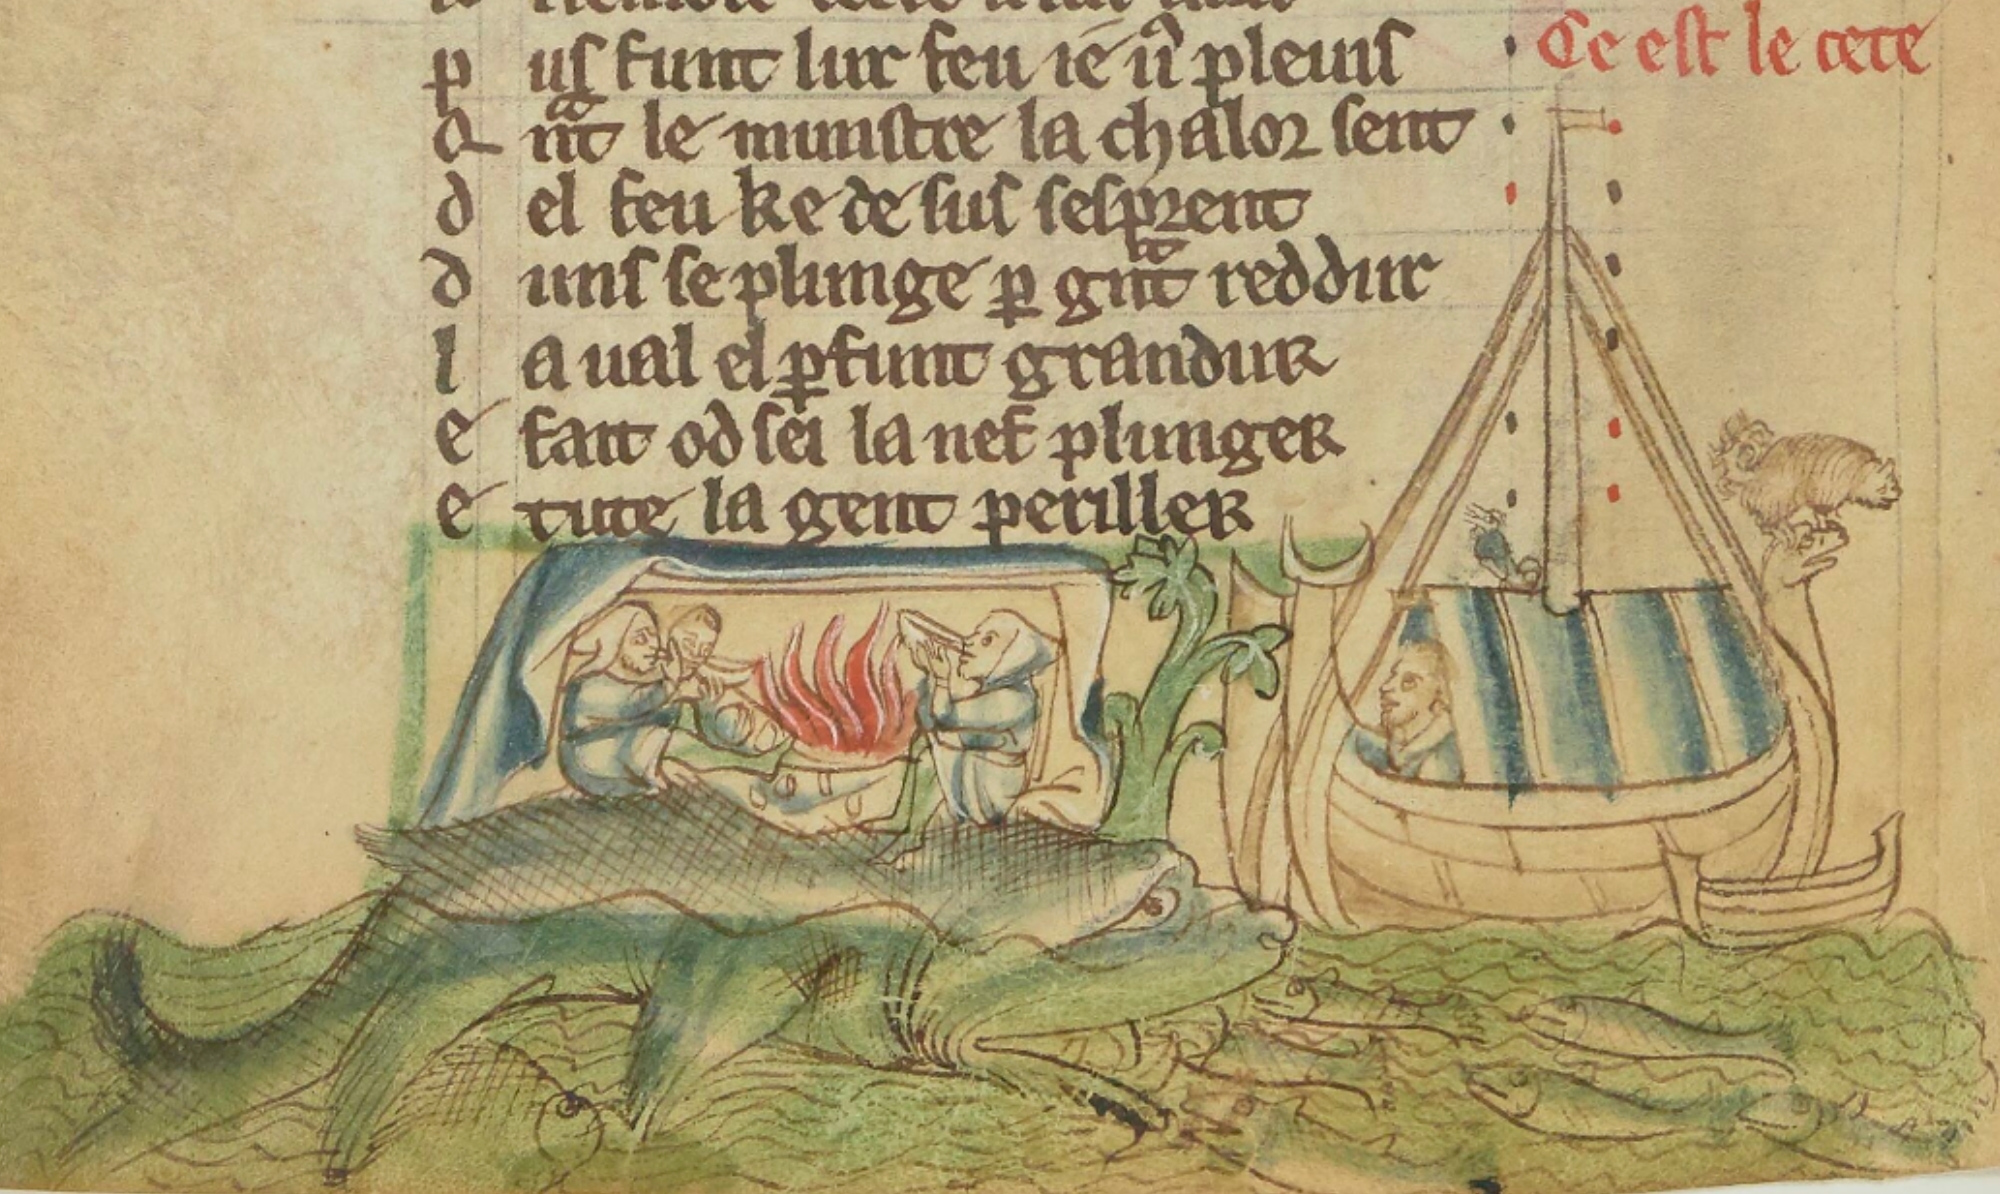 Ce est le cete
p us funt lur feu ie u pleuis
Q nt le munstre la chalor sent
d el feu ke de sus sesprent
d uns se plunge p gnt reddur
l a ual el pfunt grandur
e fait od sei la nef plunger
e tute la gent periller